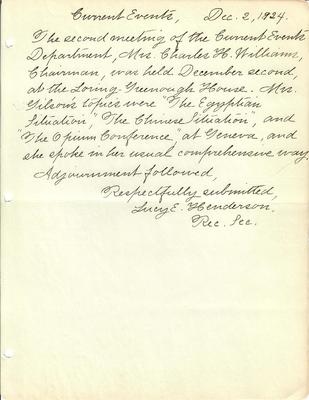 Current Events, Dec. 2, 1924.
The second meeting of the Current Events
Department, Mrs. Charles H. Williams,
Chairman, was held December second,
at the Loring-Greenough House. Mrs.
Gilson's topics were "The Egyptian
Situation," "The Chinese Situation", and
"The Opium Conference," at Geneva, and
she spoke in her usual comprehensive way.
Adjournment followed,
Respectfully submitted,
Lucy E. Henderson.
Rec. Sec.